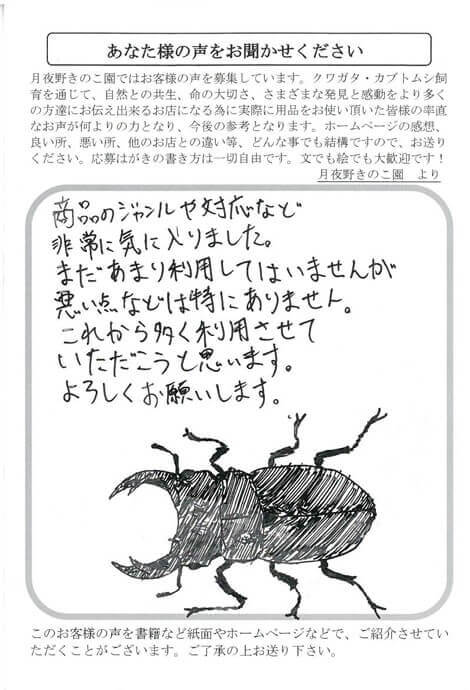 あなた様の声をお聞かせください
月夜野きのこ園ではお客様の声を募集しています。クワガタ・カブトムシ飼
育を通じて、自然との共生、命の大切さ、さまざまな発見と感動をより多く
の方達にお伝え出来るお店になる為に実際に用品をお使い頂いた皆様の率直
なお声が何よりの力となり、今後の参考となります。ホームページの感想、
良い所、悪い所、他のお店との違い等、どんな事でも結構ですので、お送り
ください。応募はがきの書き方は一切自由です。文でも絵でも大歓迎です！
月夜野きのこ園　より
商品のジャンルや対応など
非常に気に入りました。
まだあまり利用してはいませんが
悪い点などは特にありません。
これから多く利用させて
いただこうと思います。
よろしくお願いします。
このお客様の声を書籍など紙面やホームページなどで、ご紹介させてい
ただくことがございます。ご了承の上お送り下さい。